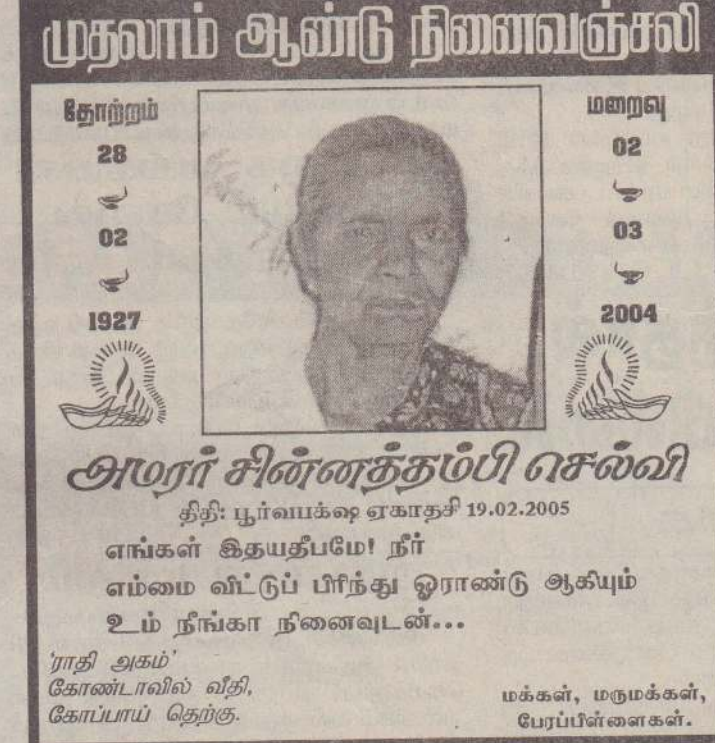 முதலாம் ஆண்டு நினைவஞ்சலி
தோற்றம்
28
02
1927
மறைவு
02
03
2004
அமரர் சின்னத்தம்பி செல்வி
திதி: பூர்வபக்ஷ ஏகாதசி 19.02.2005
எங்கள் இதயதீபமே! நீர்
எம்மை விட்டுப் பிரிந்து ஓராண்டு ஆகியும்
உம் நீங்கா நினைவுடன்...
'ராதி அகம்'
கோண்டாவில் வீதி,
கோப்பாய் தெற்கு.
மக்கள், மருமக்கள்,
பேரப்பிள்ளைகள்.